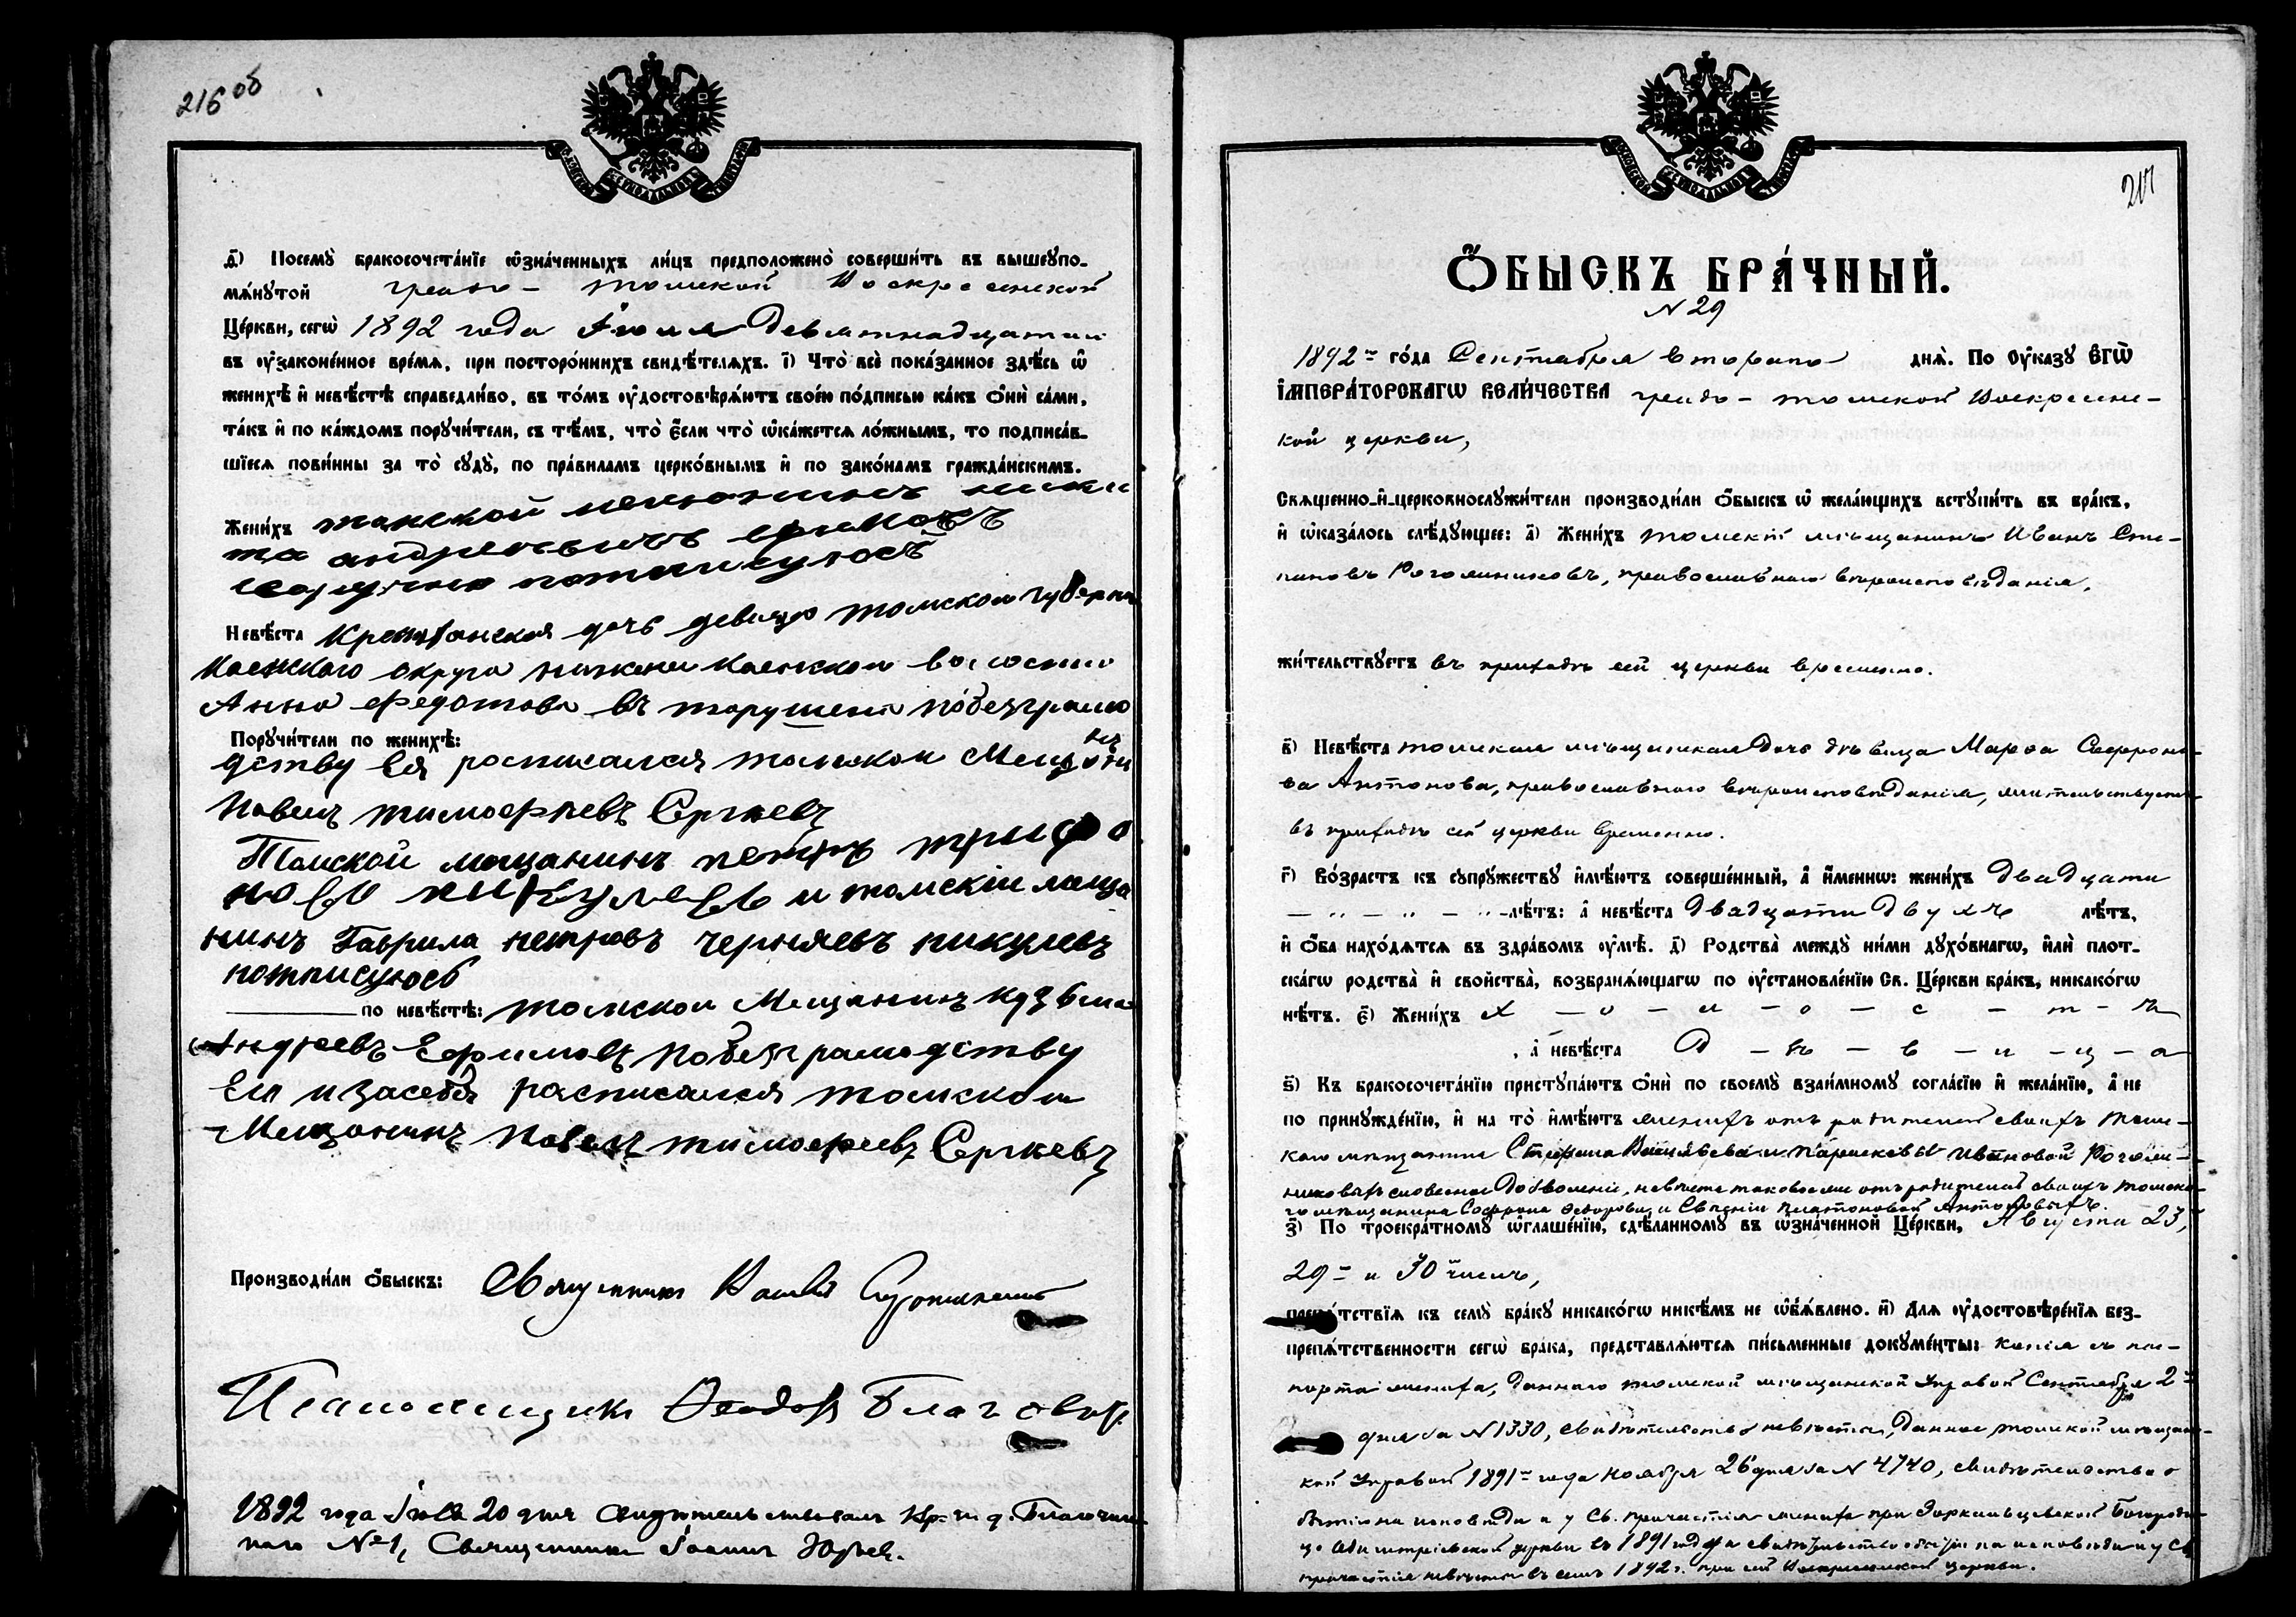 216 об
д) Посемꙋ̀ бракосочета́нїе ѡ҆зна́ченныхъ ли́цъ предположено̀ соверши́ть въ вышеꙋпо-
мѧ́нꙋтой градо- Томской Воскресенской
Це́ркви, сегѡ̀ 1892 года Іюля Девятнадцатаго
въ ᲂу҆зако́нное вре́мѧ, при посторо́ннихъ свидѣ́телѧхъ. і) Что̀ всѐ пока́занное здѣ́сь ѡ҆
женихѣ̀ и҆ невѣ́стѣ справедли́во, въ то́мъ ᲂу҆достовѣрѧ́ютъ свое́ю по́дписью ка́къ ѻ҆нѝ са́ми,
та́къ и҆ по ка́ждомъ порꙋчи́тели, съ тѣ́мъ, что̀ є҆́сли что̀ ѡ҆ка́жетсѧ ло́жнымъ, то подписа́в-
шїесѧ пови́нны за то̀ сꙋдꙋ̀, по пра́виламъ церко́внымъ и҆ по зако́намъ гражда́нскимъ.
Жени́хъ томской мещанинъ ники
та андреевичъ ефимовъ
потписуюсъ
Невѣ́ста Крестьянская дочь девица томской губерни
Каенскаго округа нижени Каенской волости
Анна Федотова въ поручении побезграмо
Порꙋчи́тели по женихѣ̀:
дству ея росписался томской Мещонинъ
Павелъ тимофеевъ Сергеевъ
Томской мещанинъ петръ трифо
новъ пикулевъ и томскіи меща
нинъ Гаврила петровъ черняевъ пикулевъ
потписуюсь
по невѣ́стѣ: томской Мещанинъ Кузьма
Андреевъ Ефимовъ побезграмодству
Его изасебя расписался томской
Мещанинъ Павелъ тимофеевъ Сергеевъ
Производи́ли ѻ҆́быскъ: Священникъ
Псаломщикъ Ѳеодоръ
1892 года Іюля 20 дня свидѣтельствовалъ Благочин-
наго №1, Священникъ Іоаннъ Юрьев.
217
Ѻ҆́БЫСКЪ БРА́ЧНЫЙ.
N 29
1892го го́да Сентября втораго днѧ̀. По ᲂу҆ка́зꙋ Є҆ГѠ̀
І҆МПЕРА́ТОРСКАГѠ ВЕЛИ́ЧЕСТВА градо-томской Воскресен-
кой церкви,
Свѧще́нно-и҆-церковнослꙋжи́тели производи́ли ѻ҆́быскъ ѡ҆ жела́ющихъ встꙋпи́ть въ бра́къ,
и҆ ѡ҆каза́лось слѣ́дꙋющее: а) Жени́хъ томскій мѣщанинъ Иванъ Сте-
пановъ Рогожниковъ, православнаго вѣроисповѣданія,
жи́тельствꙋетъ въ приходѣ сей церкви временно.
в) Невѣ́ста томская мѣщанская дочь дѣвица Марѳа Софроно-
ва Антонова, православнаго вѣроисповѣданія, жительствуетъ
въ приходѣ сей церкви временно.
г) Во́зрастъ къ сꙋпрꙋ́жествꙋ и҆мѣ́ютъ соверше́нный, а҆ и҆́меннѡ: жени́хъ двадцати
— ,, — ,, — ,, -лѣ́тъ: а҆ невѣ́ста двадцати двухъ лѣ́тъ,
и҆ ѻ҆́ба нахо́дѧтсѧ въ здра́вомъ ᲂу҆мѣ̀. д) Родства̀ междꙋ̀ ни́ми дꙋхо́внагѡ, и҆лѝ плот-
ска́гѡ родства̀ и҆ свойства̀, возбранѧ́ющагѡ по ᲂу҆становле́нїю Св. Це́ркви бра́къ, никако́гѡ
нѣ́тъ. є) Жени́хъ х — о — л — о — с — т — ъ
, а҆ невѣ́ста Д — ѣ — в — и — ц — а
ѕ) Къ бракосочета́нїю пристꙋпа́ютъ ѻ҆нѝ по своемꙋ̀ взаи́мномꙋ согла́сїю и҆ жела́нїю, а҆ не
по принꙋжде́нїю, и҆ на то̀ и҆мѣ́ютъ женихъ отъ родителей своихъ томс-
каго мѣщанина Стефана Васильева и Парасковьи Ивановой Рогож-
никовыхъ словесное дозволеніе, невѣста таковое же отъ родителей своихъ томска-
го мѣщанина Софрона Ѳедорова и Евгеніи Платоновой Антоновыхъ.
з) По троекра́тномꙋ ѡ҆глаше́нїю, сдѣ́ланномꙋ въ ѡ҆зна́ченной Це́ркви, Августа 23,
29го и 30 чиселъ,
препѧ́тствїѧ къ семꙋ̀ бра́кꙋ никако́гѡ никѣ́мъ не ѡ҆б̾ѧ́влено. и) Для ᲂу҆достовѣре́нїѧ без-
препѧ́тственности сегѡ̀ бра́ка, представлѧ́ютсѧ пи́сьменные докꙋме́нты: копія съ пас-
порта жениха, даннаго томской мѣщанской Управой Сентября 2го
дня за N 1330, свидѣтельство невѣсты, данное томской мѣщанс-
кой Управой 1891го года Ноября 26 дня за N 4740, свидѣтельство о
бытіи на исповѣди и у Св. причастія жениха при Богороди-
це церкви въ 1891 году и свидѣтельство о бытіи на исповѣди и у Св.
причастія невѣсты въ семъ 1892 г. при сей Воскресенской церкви.